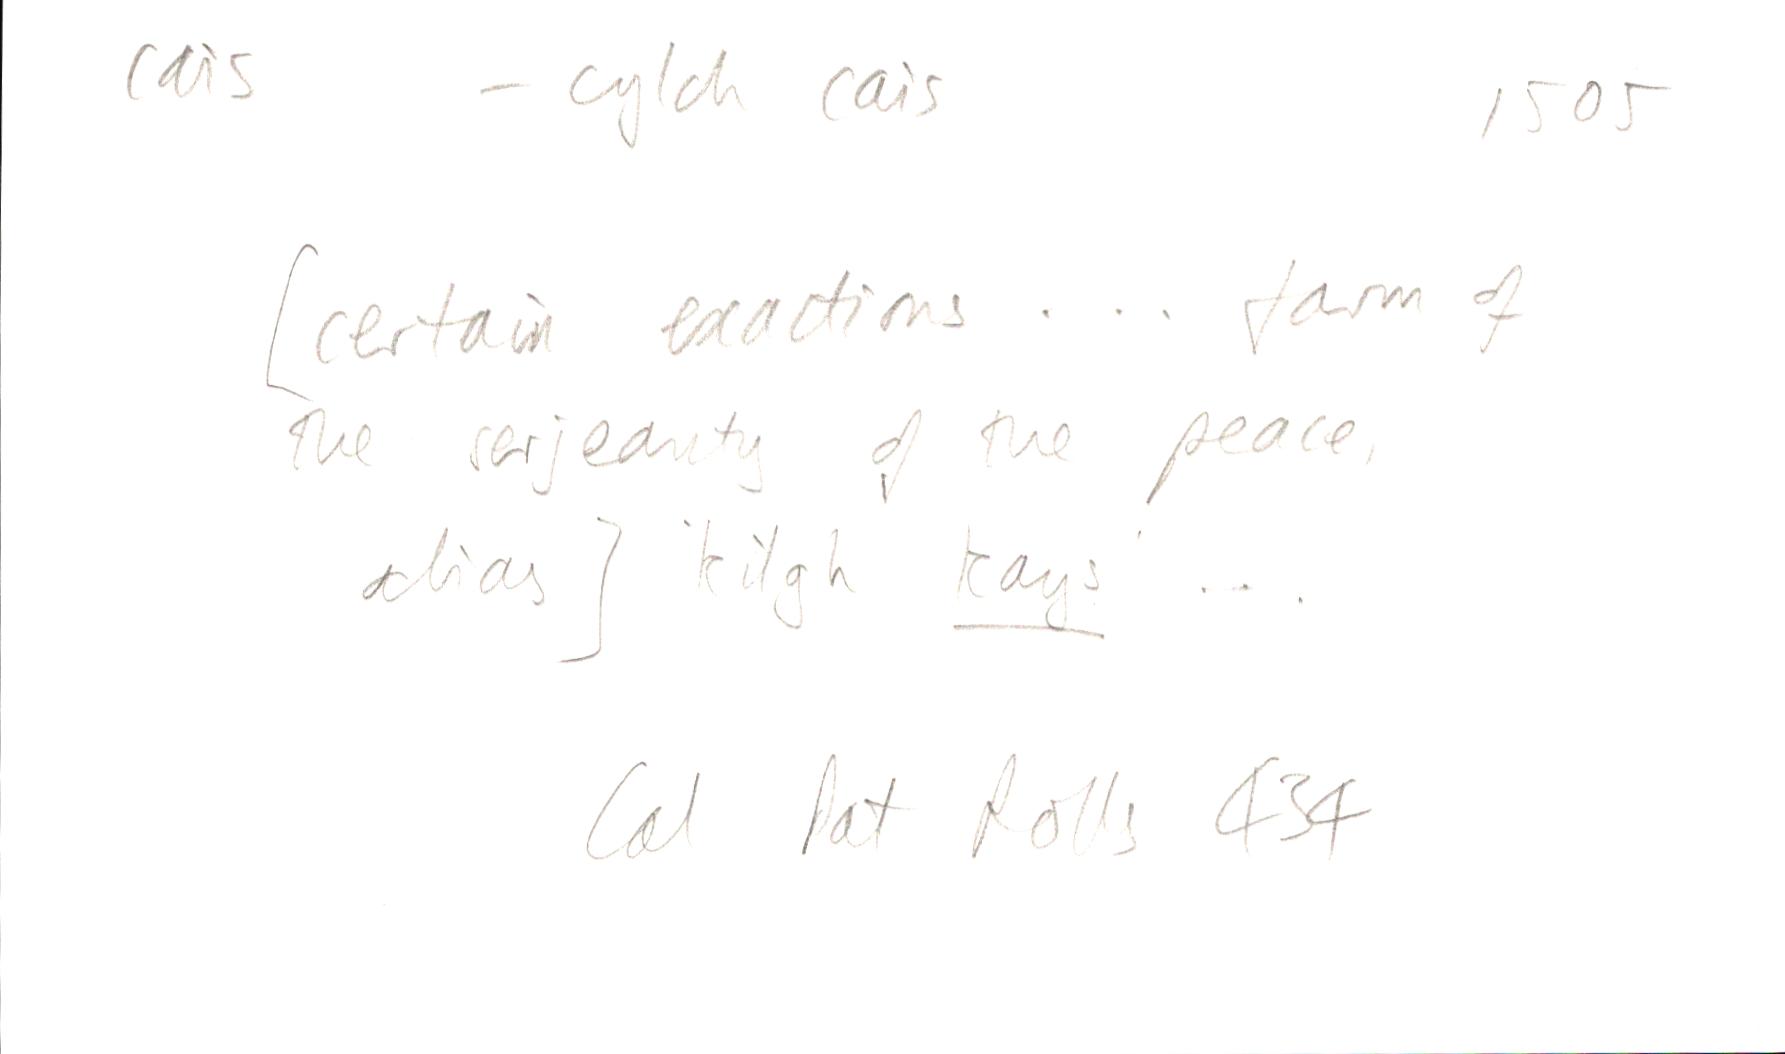 cais – cylch cais 1505
[certain exactions .... farm of
the serjeanty of the peace,
alias] 'kilgh kays' ....
Cal Pat Rolls 434